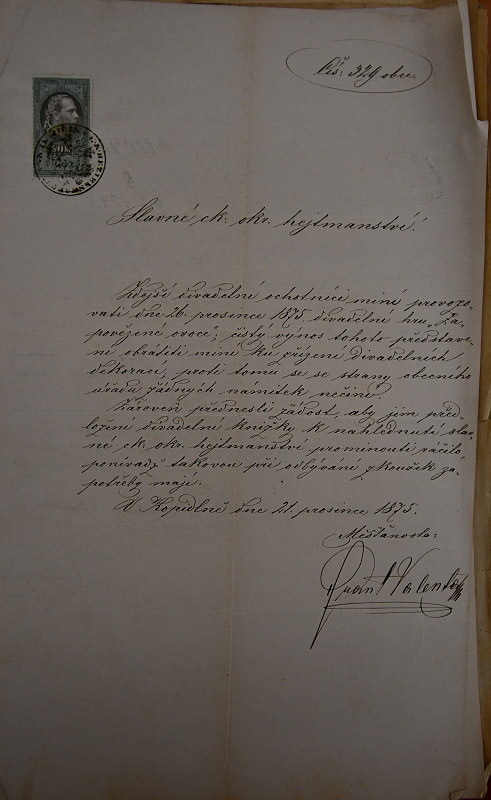 Čís: 329 obec.
50 KR
Slavné ck. okr. hejtmanství!
Zdejší divadelní ochotníci míní provozo-
vati dne 26. prosince 1875 divadelní hru „Za-
povězené ovoce“; čistý výnos tohoto představe-
ní obrátiti míní ku zřízení divadelních
dekorací, proti tomu se se strany obecního
úřadu žádných námitek nečiní.
Zároveň přednesli žádost, aby jim před-
ložení divadelní knížky k nahlédnutí sla-
vné ck. okr. hejtmanství prominouti ráčilo,
poněvadž takovou při odbývání zkoušek za-
potřebí mají.
V Kopidlně dne 21. prosince 1875.
Měšťanosta:
Frant Valenta